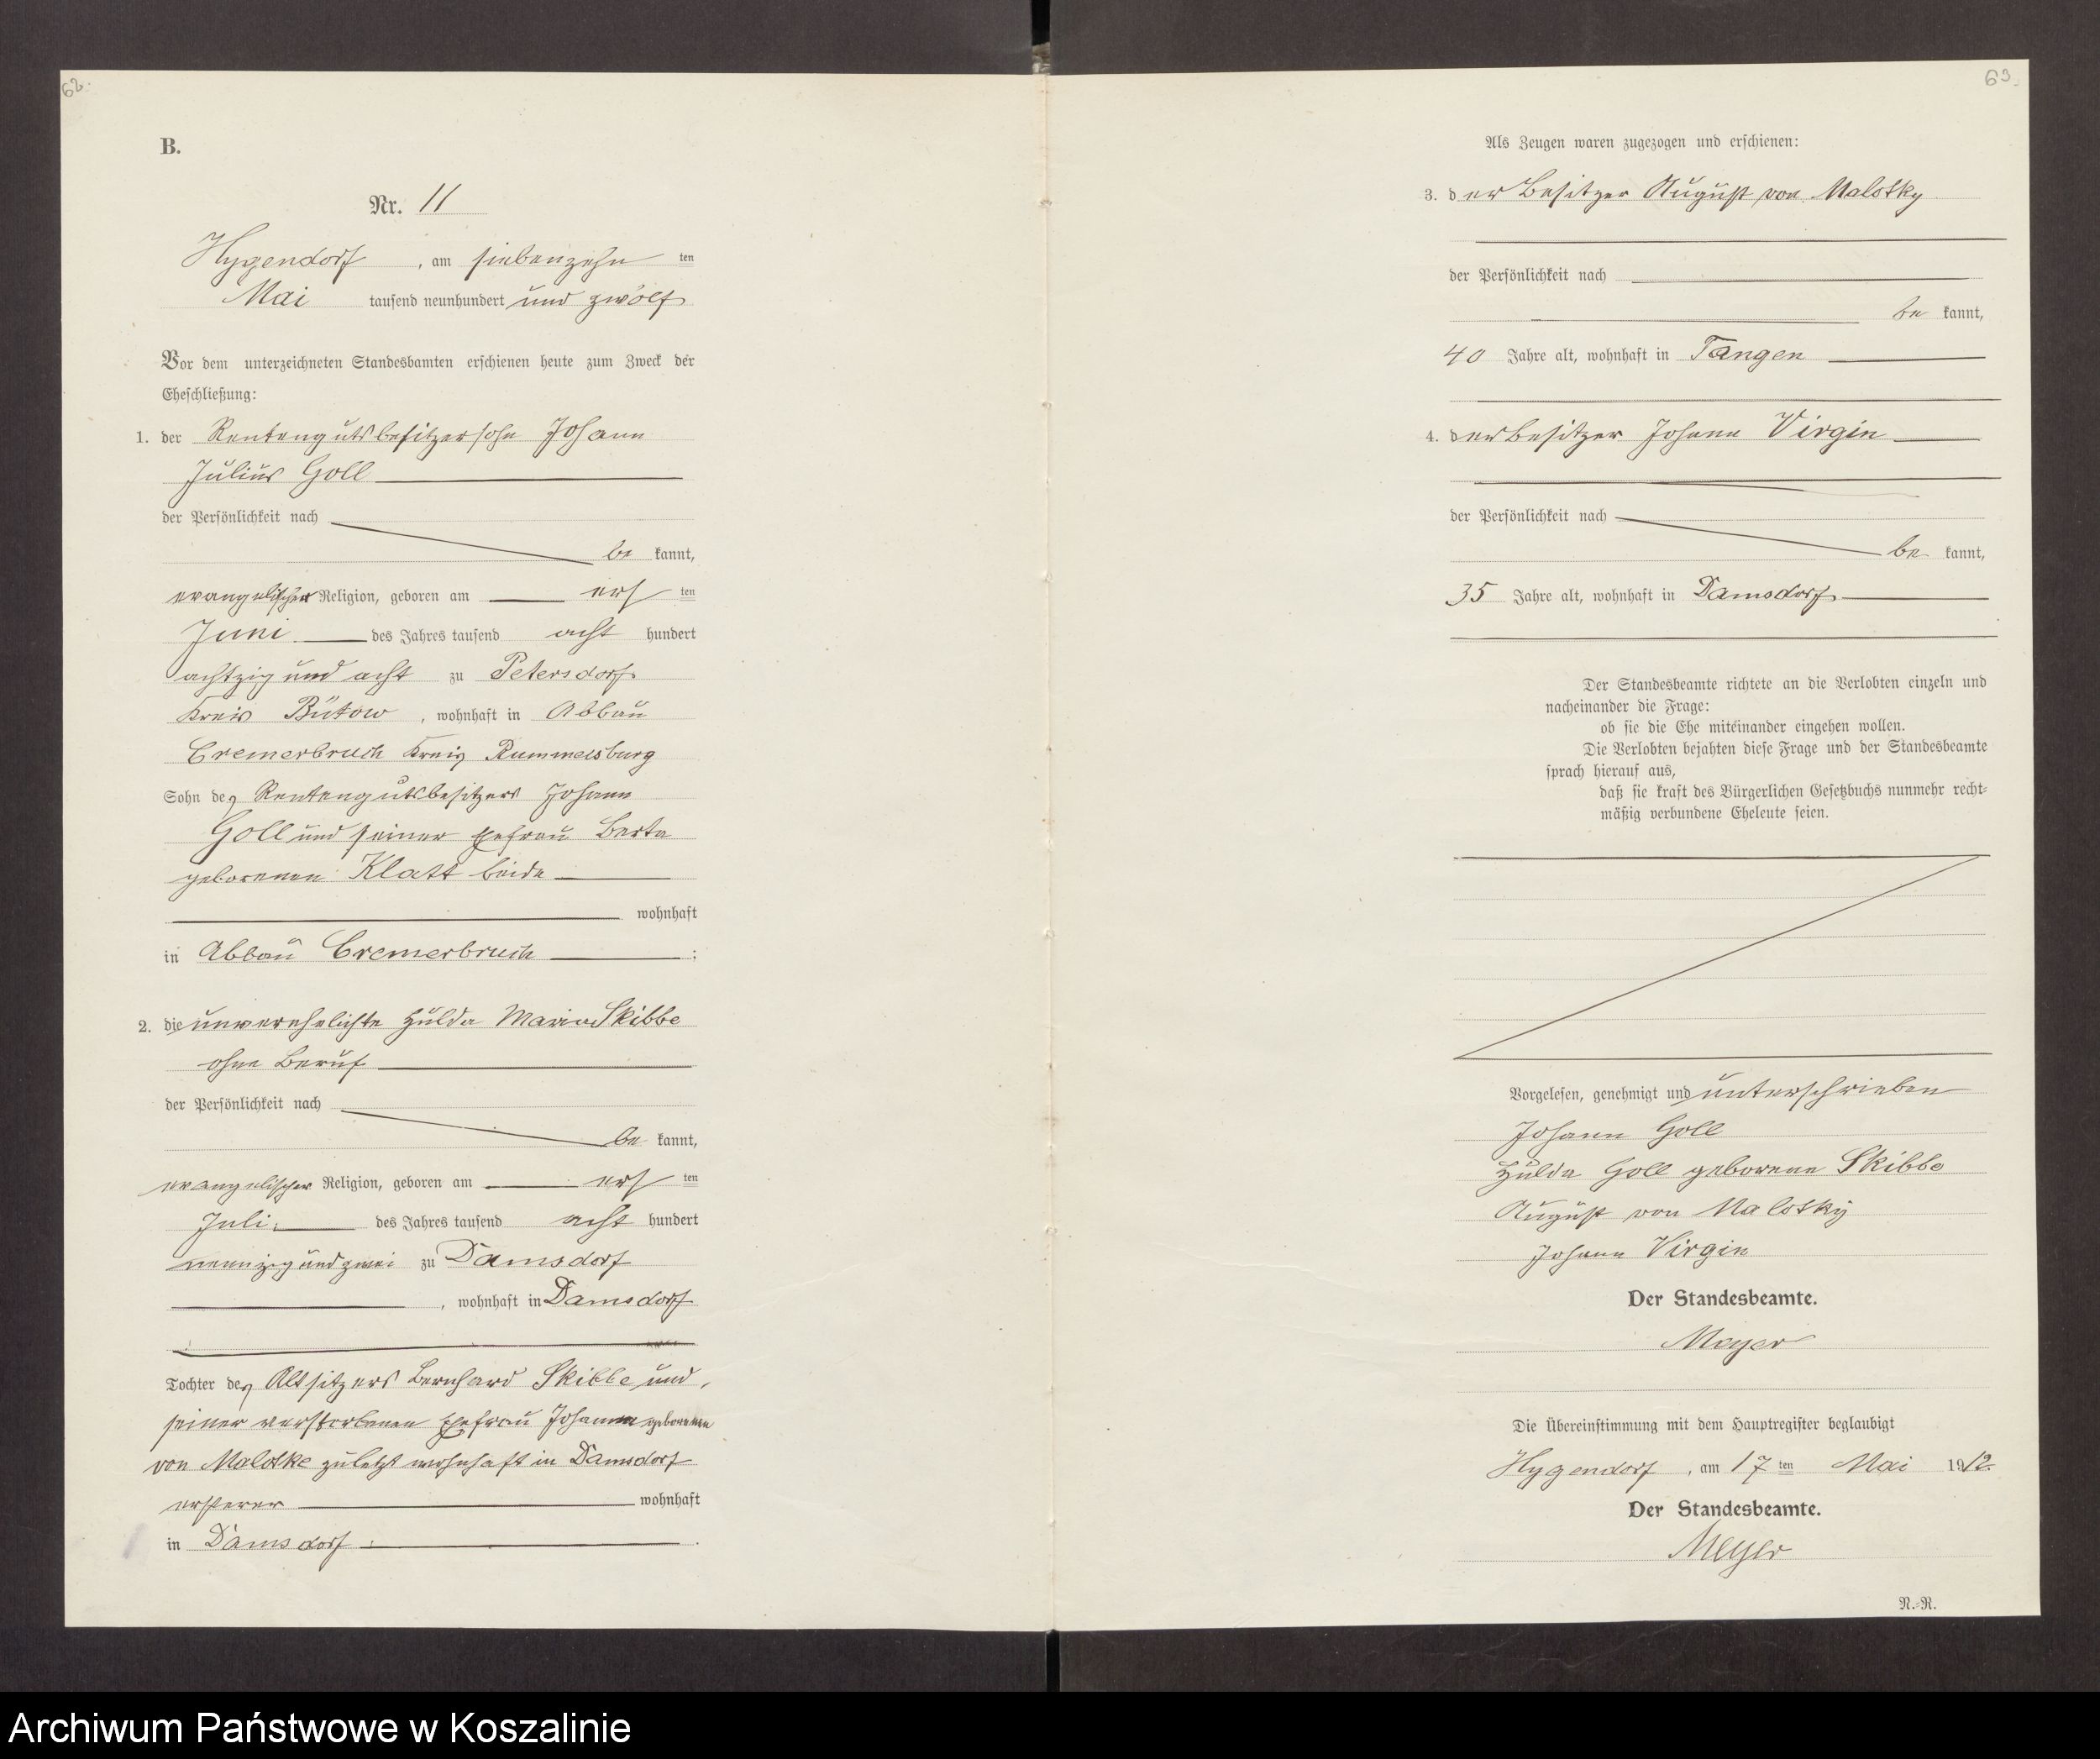 62.
B.
Nr. 11
Hygendorf, am siebenzehn ten
Mai tausend neunhundert und zwölf
Vor dem unterzeichneten Standesbamten erschienen heute zum Zweck der
Eheschließung:
1. der Rentengutsbesitzersohn Johann
Julius Goll
der Persönlichkeit nach
be kannt,
evangelischer Religion, geboren am ers ten
Juni des Jahres tausend acht hundert
achtzig und acht zu Petersdorf
Kreis Bütow, wohnhaft in Abbau
Cremerbruch Kreis Rummelsburg
Sohn des Rentengutsbesitzers Johann
Goll und seiner Ehefrau Berta
geborenen Klatt beide
wohnhaft
in Abbau Cremerbruch ;
2. die unverehelichte Hulda Maria Skibbe
ohne Beruf
der Persönlichkeit nach
be kannt,
evangelischer Religion, geboren am ers ten
Juli des Jahres tausend acht hundert
neunzig und zwei zu Damsdorf
, wohnhaft in Damsdorf
Tochter des Altsitzers Bernhard Skibbe und
seiner verstorbenen Ehefrau Johanne geborenen
von Malotke zuletzt wohnhaft in Damsdorf
ersterer wohnhaft
in Damsdorf .
63.
Als Zeugen waren zugezogen und erschienen:
3. der Besitzer August von Malotky
der Persönlichkeit nach
be kannt,
40 Jahre alt, wohnhaft in Tangen
4. der Besitzer Johann Virgin
der Persönlichkeit nach
be kannt,
35 Jahre alt, wohnhaft in Damsdorf
Der Standesbeamte richtete an die Verlobten einzeln und
nacheinander die Frage:
ob sie die Ehe miteinander eingehen wollen.
Die Verlobten bejahten diese Frage und der Standesbeamte
sprach hierauf aus,
daß sie kraft des Bürgerlichen Gesetzbuchs nunmehr recht-
mäßig verbundene Eheleute seien.
Vorgelesen, genehmigt und unterschrieben
Johann Goll
Hulda Goll geborene Skibbe
August von Malotky
Johann Virgin
Der Standesbeamte.
Meyer
Die Übereinstimmung mit dem Hauptregister beglaubigt
Hygendorf, am 17 ten Mai 1912.
Der Standesbeamte.
Meyer
R.-R.
Archiwum Państwowe w Koszalinie